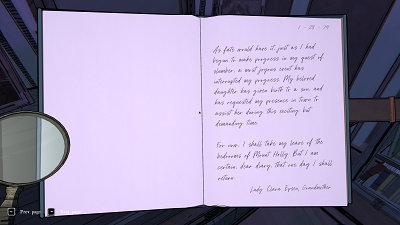 1 - 28 - 79
As fate would have it, just as I had
begun to make progress in my quest of
slumber, a most joyous event has
interrupted my progress. My beloved
daughter has given birth to a son, and
has requested my presence in town to
assist her during this exciting but
demanding time.
For now, I shall take my leave of the
bedrooms of Mount Holly. But I am
certain, dear diary, that one day I shall
return.
Lady Clara Epsen, Grandmother
Prev page